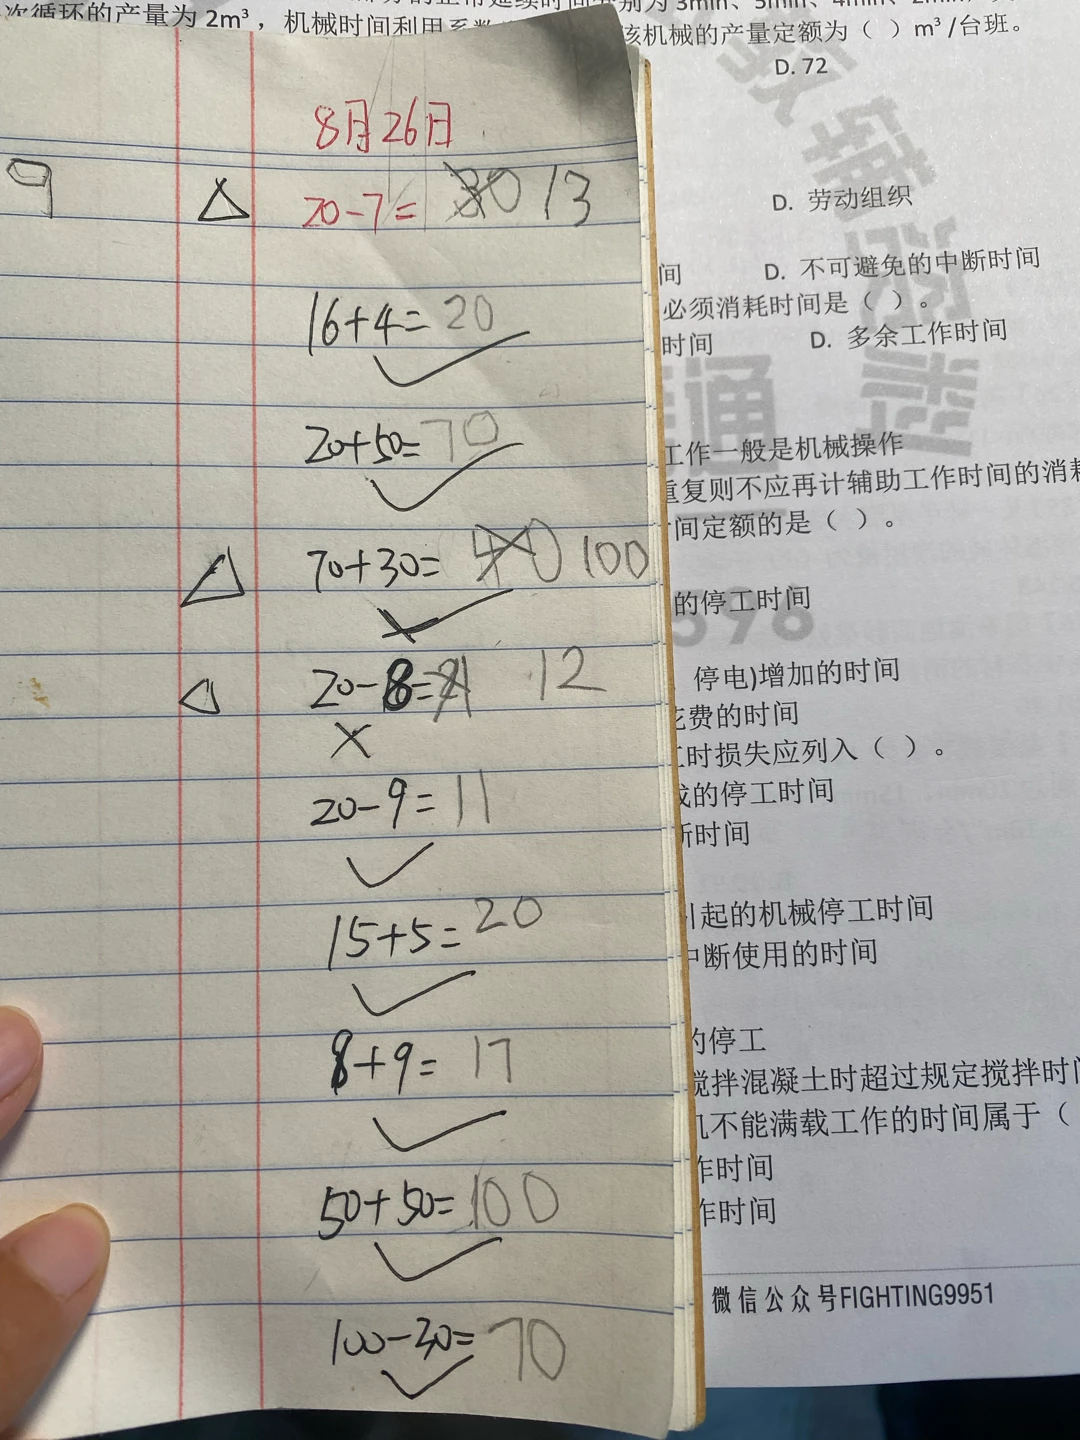 次循环的产量为 2m³，机械时间利用系
该机械的产量定额为（ ）m³/台班。
D. 72
8月26日
9
20-7= 30 13
D. 劳动组织
间 D. 不可避免的中断时间
16+4=20
必须消耗时间是（ ）。
时间 D. 多余工作时间
通
20+50=70
工作一般是机械操作
重复则不应再计辅助工作时间的消耗
间定额的是（ ）。
70+30= 40 100
的停工时间
596
20-8=21 12
停电)增加的时间
花费的时间
工时损失应列入（ ）。
20-9=11
成的停工时间
断时间
15+5=20
引起的机械停工时间
中断使用的时间
8+9=17
的停工
搅拌混凝土时超过规定搅拌时间
机不能满载工作的时间属于（
作时间
50+50=100
作时间
微信公众号FIGHTING9951
100-30=70